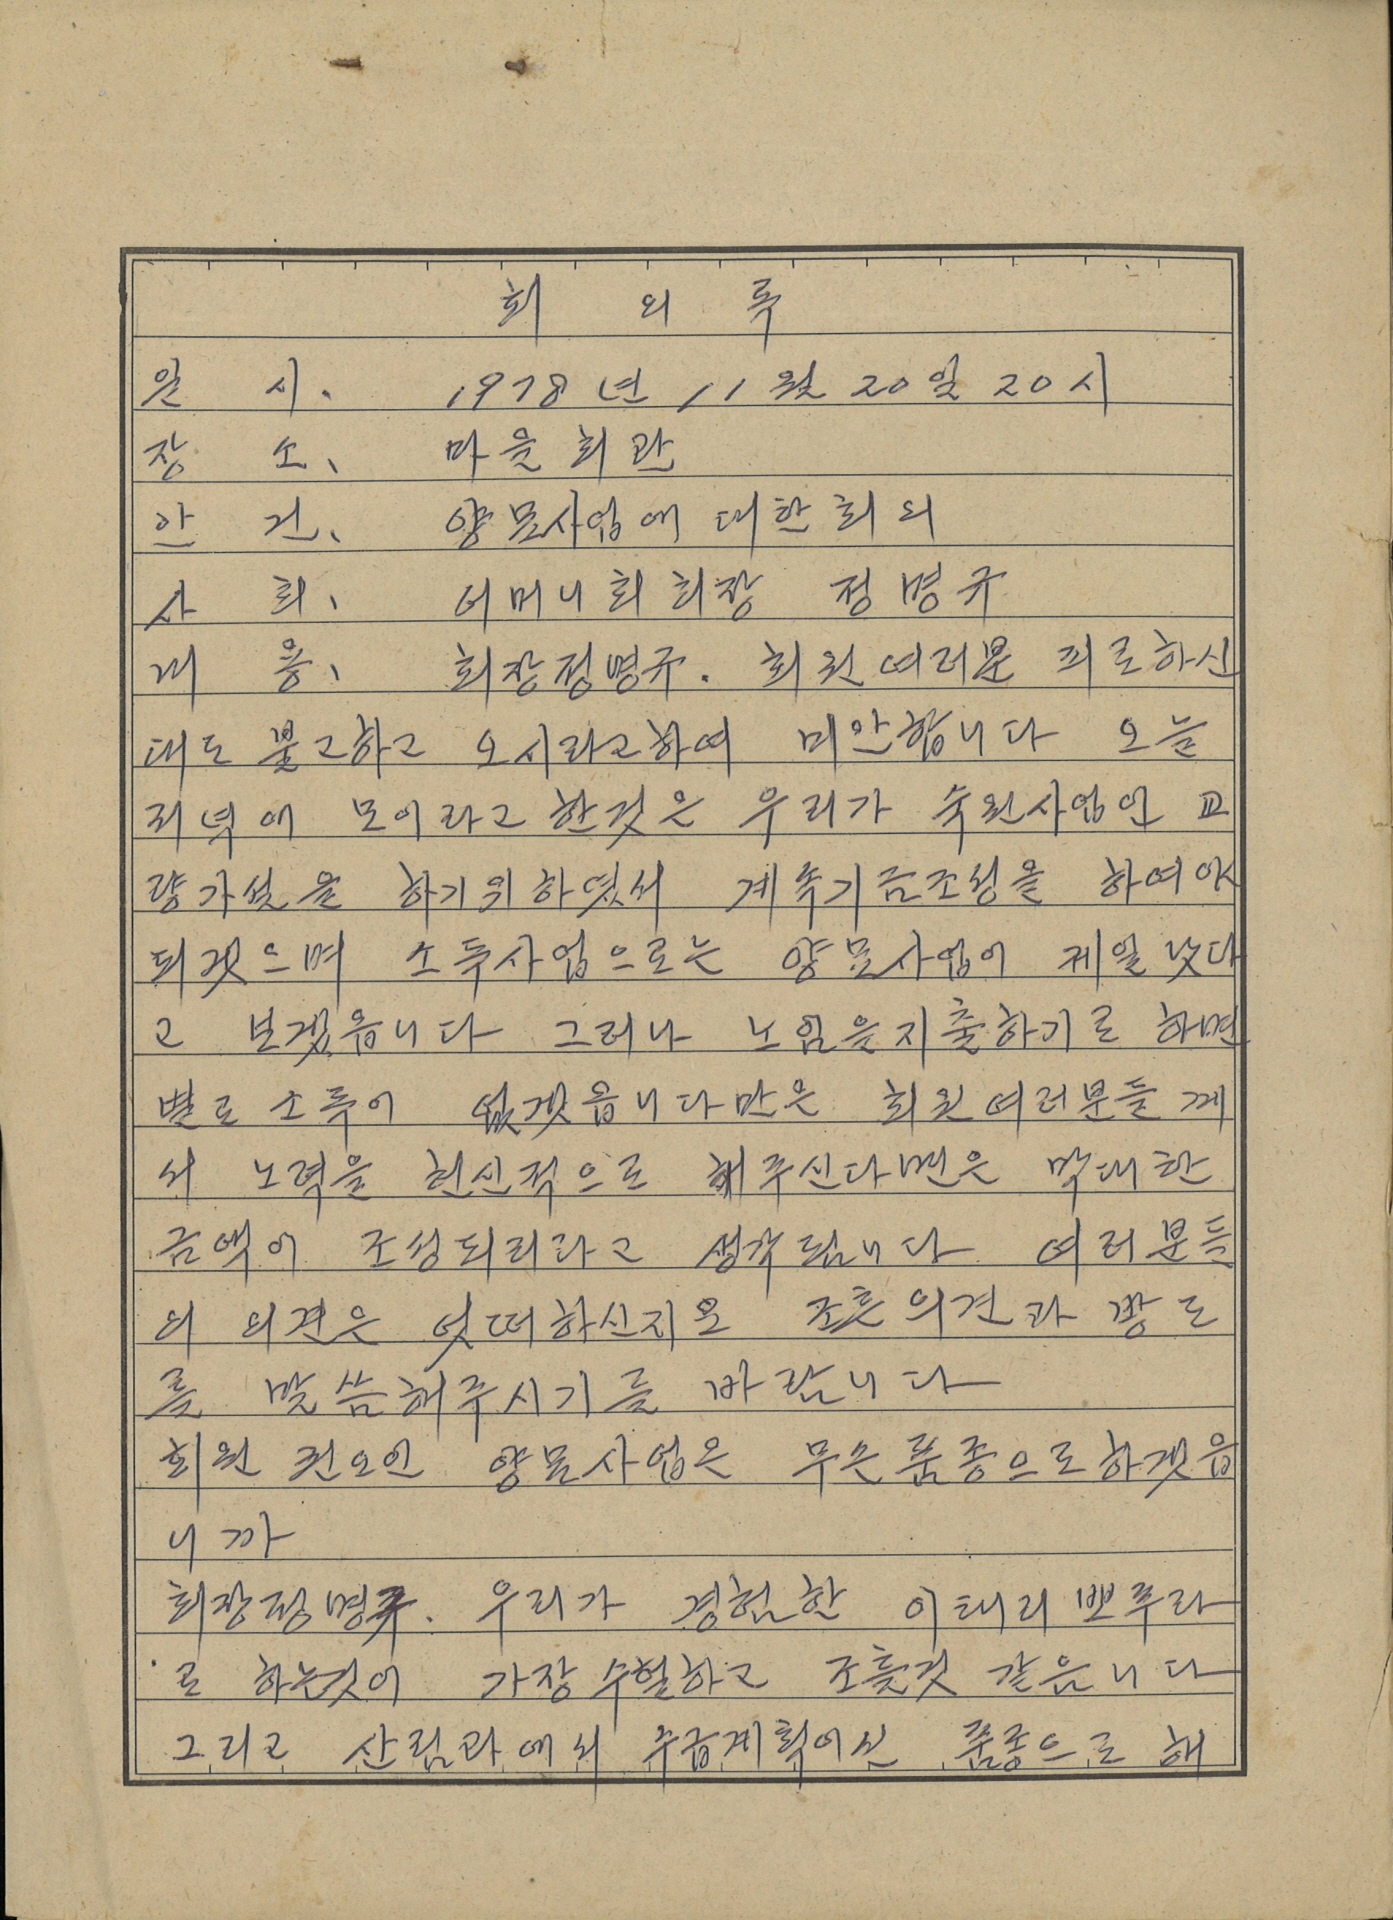 회 의 록
일 시. 1978년 11월 20일 20시
장 소、 마을회관
안 건、 양묘사업에 대한회의
사 회、 어머니회회장 정명규
내 용、 회장정명규. 회원여러분 피로하신
대도 불고하고 오시라고하여 미안합니다 오늘
저녁에 모이라고한것은 우리가 숙원사업인 교
량가설을 하기위하였서 계속기금조성을 하여야
되겟으며 소득사업으로는 양묘사업이 제일낫다
고 보겠읍니다 그러나 노임을지출하기로 하면
별로소득이 없겟읍니다만은 회원여러분들께
서 노력을 헌신적으로 해주신다면은 막대한
금액이 조성되리라고 생각됩니다 여러분들
의 의견은 엇떠하신지요 조흔의견과 방도
를 말씀해주시기를 바랍니다
회원 전오인 양묘사업은 무슨품종으로하겟읍
니까
회장정명규. 우리가 경험한 이태리뽀푸라
로 하는것이 가장수헐하고 조흘것 같읍니다
그리고 산림과에서 수급계획이신 품종으로 해